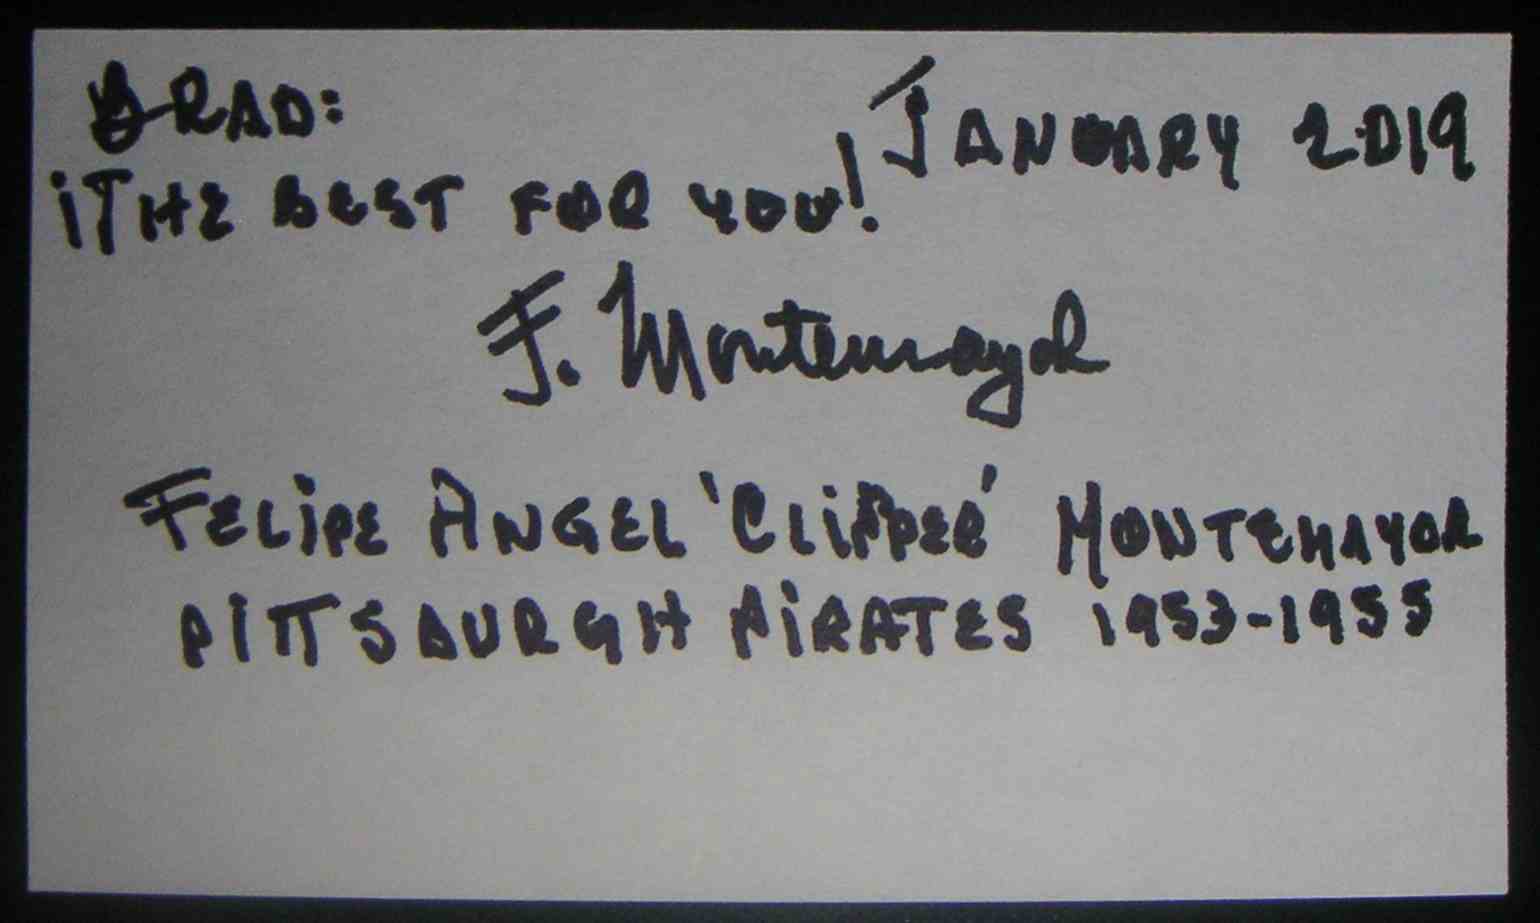 BRAD:
JANUARY 2019
¡THE BEST FOR YOU!
F. Montemayor
FELIPE ANGEL 'CLIPPER' MONTEMAYOR
PITTSBURGH PIRATES 1953-1955